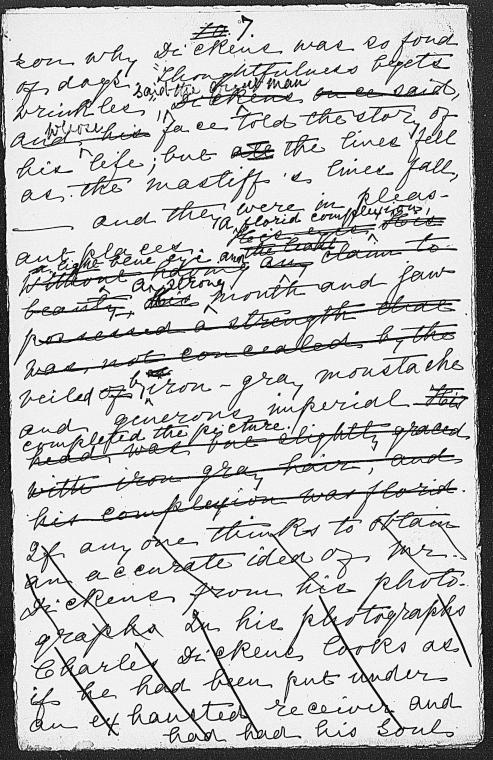 7.
son why Dickens was so fond
of dogs, "Thoughtfulness begets
said the great man
wrinkles," Dickens once said,
whose
and his face told the story of
his life; but the lines fell
as the mastiff's lines fall,
— and they were in pleas-
A florid complexion,
His eyes His
ant places.
a light blue eye and
without having any claim to
a strong
beauty, his mouth and jaw
possessed a strength that
was not concealed by the
veiled by iron-gray moustache
and generous imperial His
completed the picture.
head was but slightly graced
with iron gray hair, and
his complexion was florid.
If any one thinks to obtain
an accurate idea of Mr.
Dickens from his photo-
graphs In his photographs
Charles Dickens looks as
if he had been put under
an exhausted receiver and
had had his soul